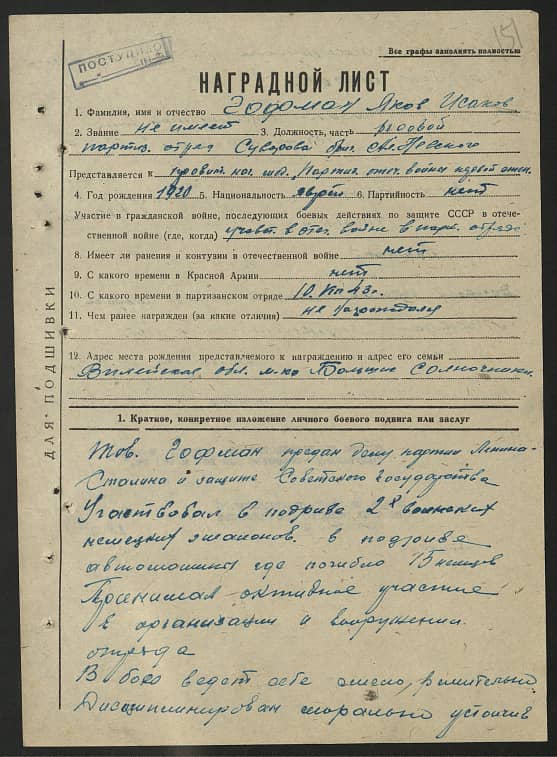 151
ПОСТУПИЛО
Все графы заполнять полностью
НАГРАДНОЙ ЛИСТ
1. Фамилия, имя и отчество Гофман Яков Исаков
2. Звание не имеет 3. Должность, часть рядовой
партиз. отряд Суворова бриг. Невского
Представляется к мед. Партиз. отеч. войны
4. Год рождения 1920 5. Национальность еврей 6. Партийность нет
Участие в гражданской войне, последующих боевых действиях по защите СССР в отече-
ственной войне (где, когда) участ. в отеч. войне в парт. отряде
8. Имеет ли ранения и контузии в отечественной войне нет
9. С какого времени в Красной Армии нет
10. С какого времени в партизанском отряде 10. 43 г.
11. Чем ранее награжден (за какие отличия) не награждался
12. Адрес места рождения представляемого к награждению и адрес его семьи
Вилейская обл. м-ко Большие Солпочники
ДЛЯ ПОДШИВКИ
1. Краткое, конкретное изложение личного боевого подвига или заслуг
Тов. Гофман предан делу партии Ленина-
Сталина и защите Советского государства
Участвовал в подрыве 2х воинских
немецких эшалонов. в подрыве
автомашины где погибло 15 немцев
Принимал активное участие
в организации и вооружении
отряда
В бою ведет себе смело, решительно
Дисциплинирован морально устойчив